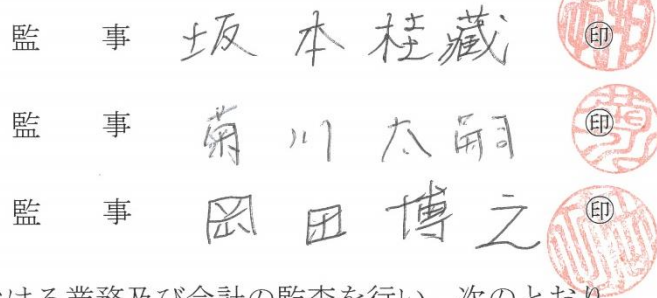 監 事 坂本桂藏 ㊞
監 事 菊川太嗣 ㊞
監 事 岡田博之 ㊞
ける業務及び会計の監査を行い、次のとおり